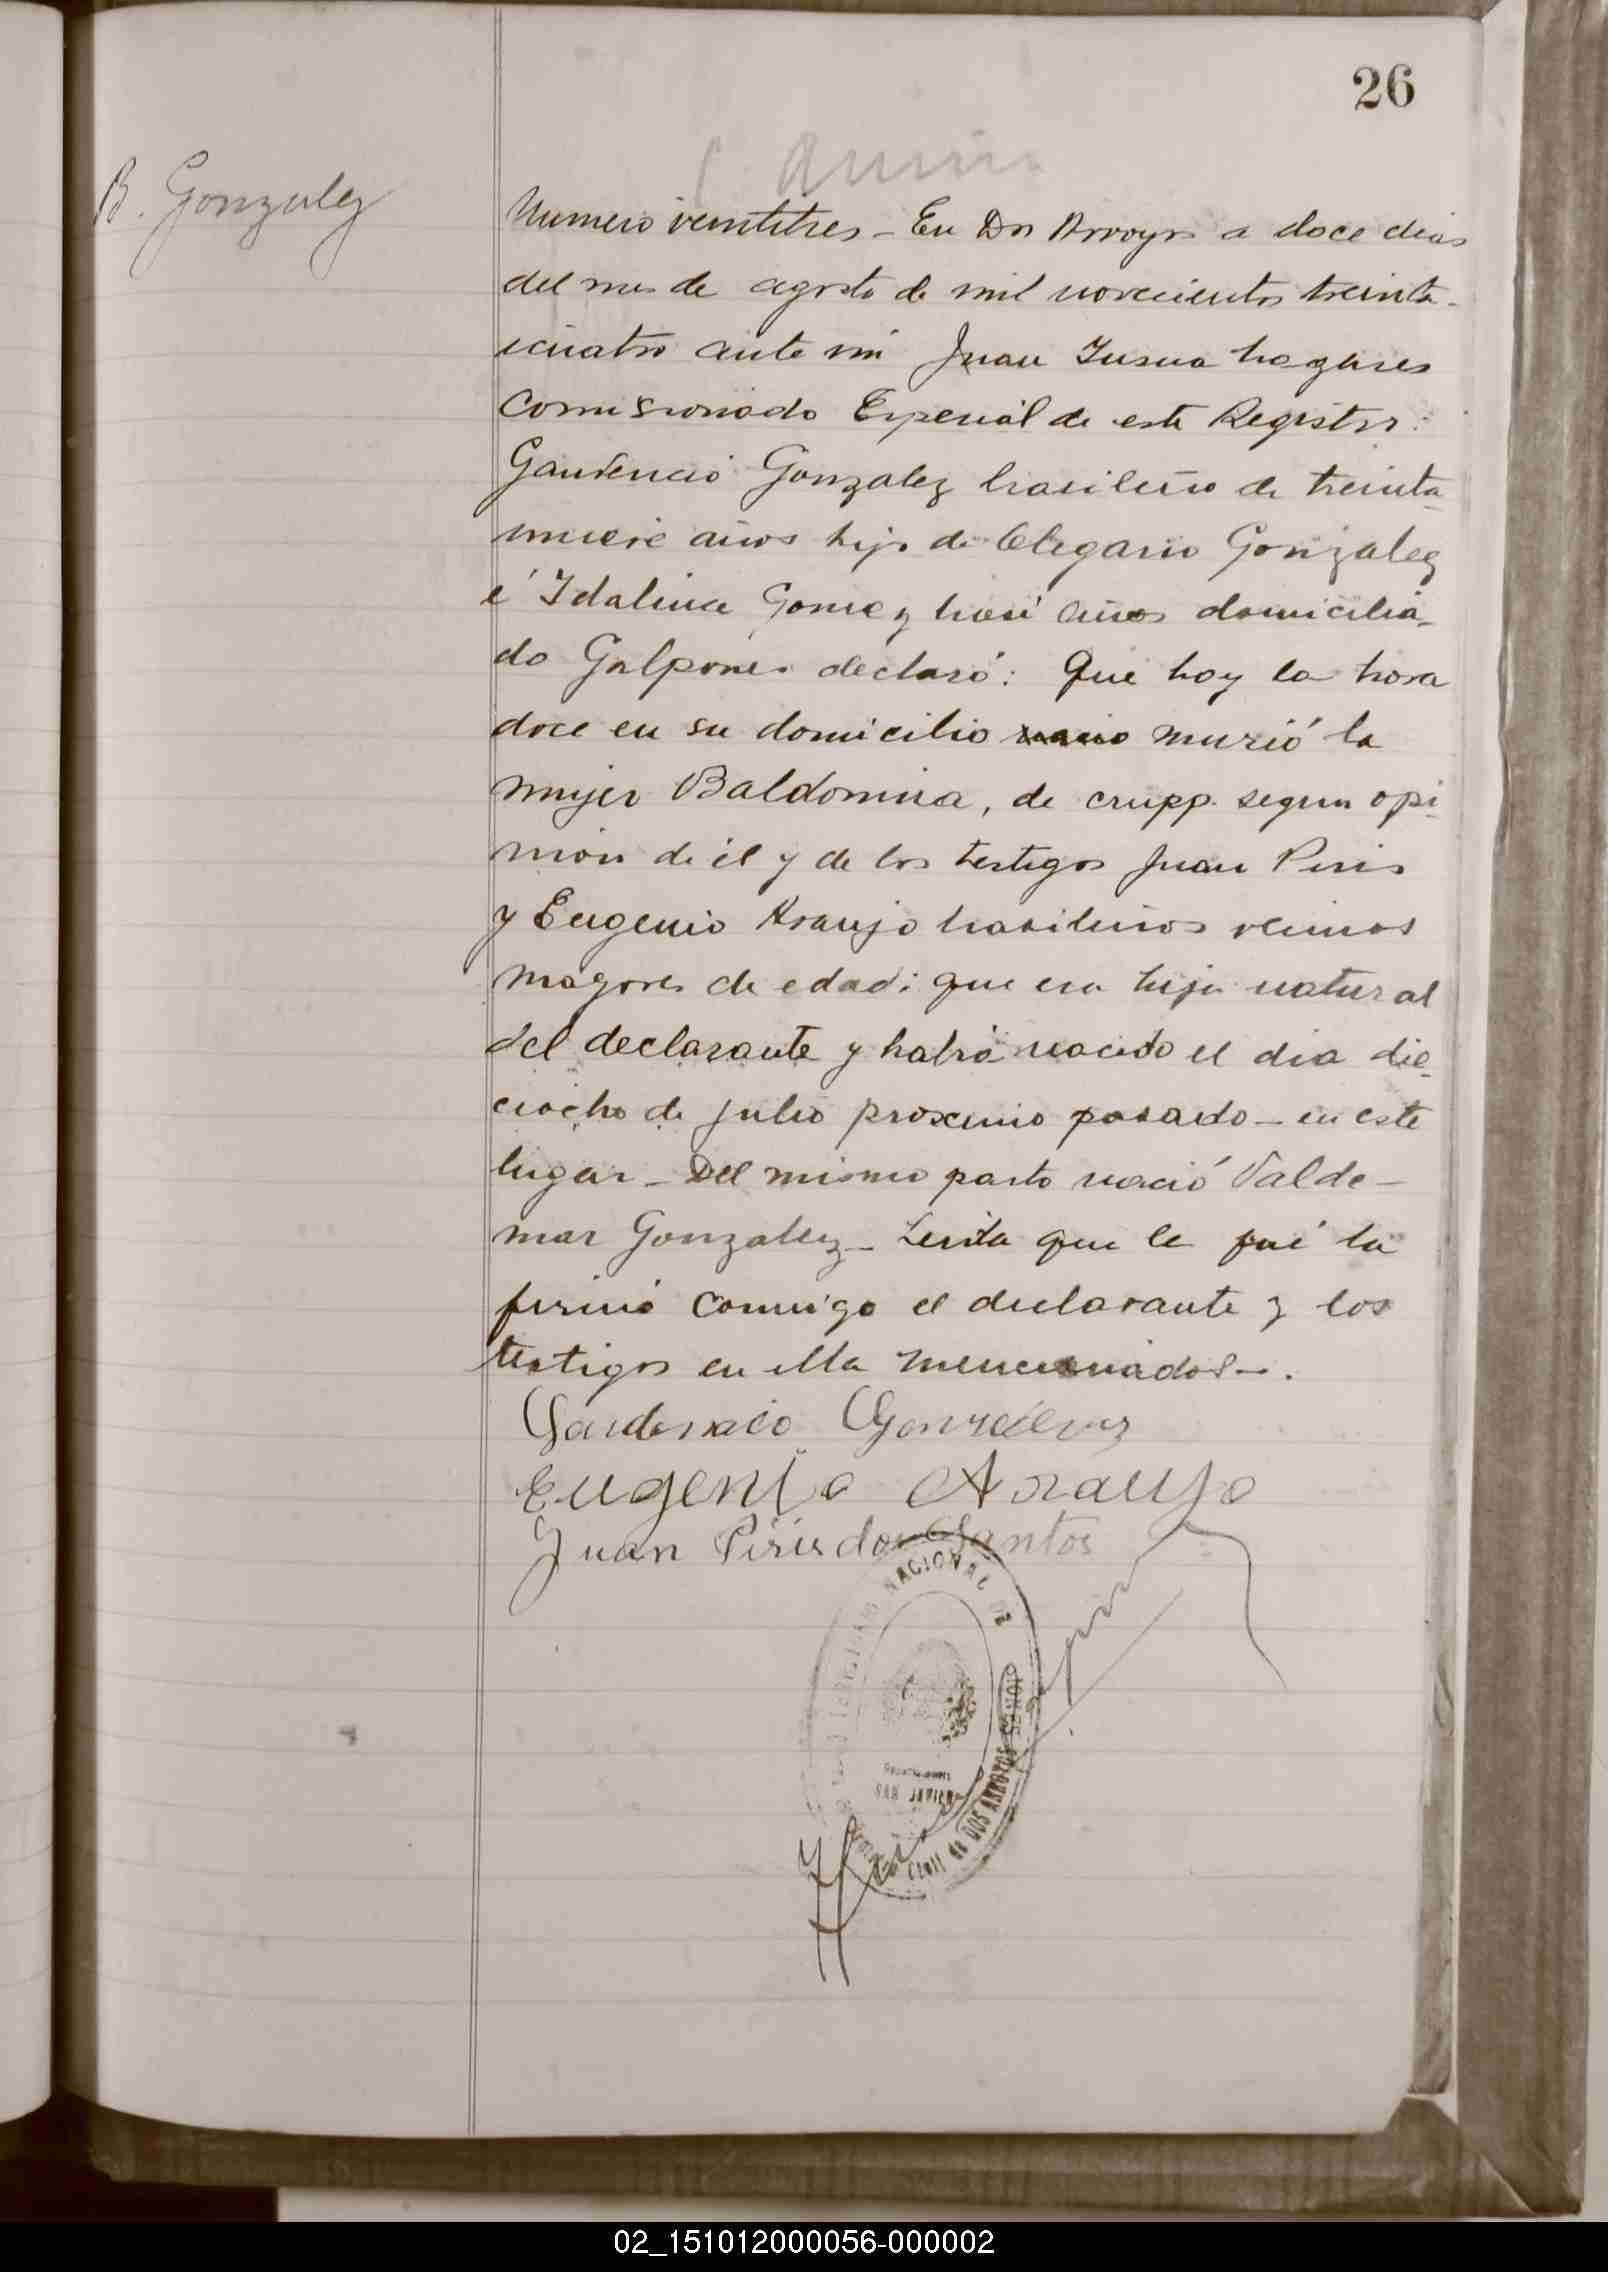 26
B. Gonzalez
Numero veintitres - En Dos Arroyos a doce dias
del mes de agosto de mil novecientos treinta
icuatro ante mi Juan
Comisionado Especial de este Registro:
Gaudencio Gonzalez brasileño de treinta
inueve años hijo de Olegario Gonzalez
é Idalina Gomez domicilia-
do Galpones declaró: Que hoy la hora
doce en su domicilio nacio murió la
mujer Baldomina, de crupp segun opi-
nion de él y de los testigos Juan Piris
y Eugenio Araujo brasileños vecinos
mayores de edad: que era hija natural
del declarante y habia nacido el dia die-
ciocho de julio proximo pasado - en este
lugar - Del mismo parto nació Valde-
mar Gonzalez - Leida que le fué la
firmó conmigo el declarante y los
testigos en ella mencionados -.
Gaudencio Gonzalez
Eugenio Araujo
Juan Piris dos Santos
NACIONAL DE
DOS ARROYOS
02_151012000056-000002